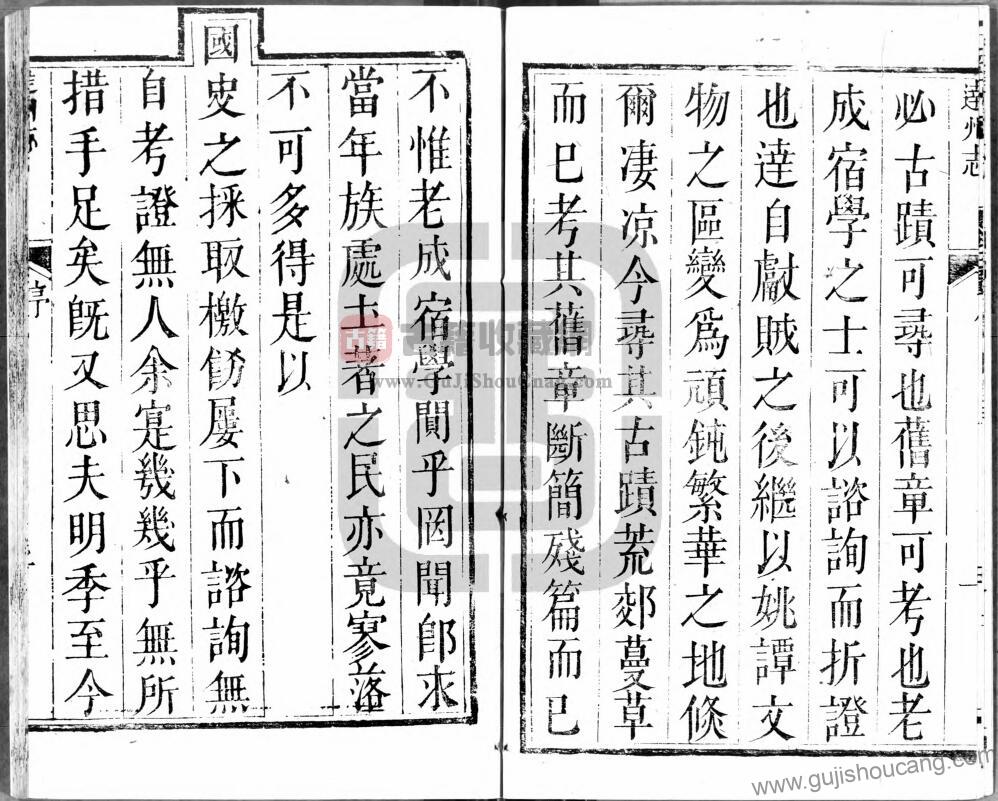 達州志
必古蹟可尋也舊章可考也老
成宿學之士可以諮詢而折證
也達自獻賊之後繼以姚譚文
物之區變爲頑鈍繁華之地倐
爾凄凉今尋其古蹟荒郊蔓草
而已考其舊章斷簡殘篇而已
不惟老成宿學闃乎罔聞即求
當年族處土著之民亦竟寥落
不可多得是以
國史之採取檄飭屢下而諮詢無
自考證無人余寔㡬幾乎無所
措手足矣旣又思夫明季至今
序
古籍
古籍收藏網
www.GuJiShouCang.com
www.gujishoucang.com